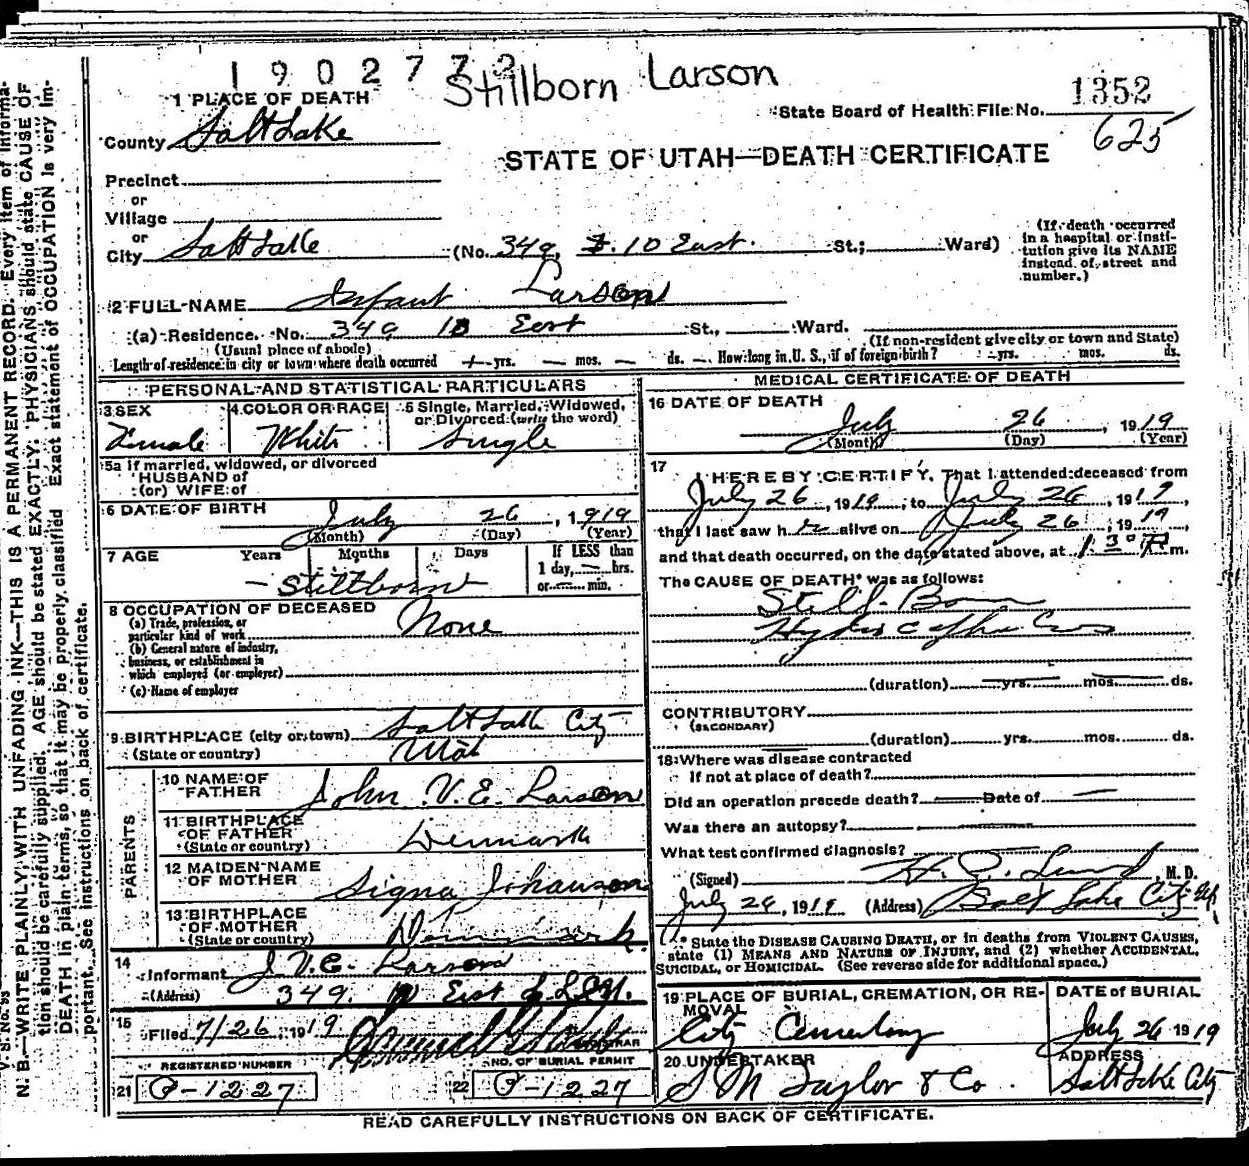 1902773
Stillborn Larson
1 PLACE OF DEATH
State Board of Health File No. 1352
County Salt Lake
625
STATE OF UTAH—DEATH CERTIFICATE
Precinct
or
Village
or
City Salt Lake (No. 349 10 East St.; Ward)
(If death occurred in a hospital or institution give its NAME instead of street and number.)
2 FULL NAME Infant Larson
(a) Residence. No. 349 10 East St., Ward.
(Usual place of abode) (If non-resident give city or town and State)
Length of residence in city or town where death occurred yrs. — mos. — ds. — How long in U. S., if of foreign birth? yrs. mos. ds.
PERSONAL AND STATISTICAL PARTICULARS
3 SEX 4 COLOR OR RACE 5 Single, Married, Widowed, or Divorced (write the word)
Female White Single
5a If married, widowed, or divorced
HUSBAND of
(or) WIFE of
6 DATE OF BIRTH July 26, 1919
(Month) (Day) (Year)
7 AGE Years Months Days If LESS than 1 day, — hrs. or — min.
— Stillborn
8 OCCUPATION OF DECEASED
(a) Trade, profession, or particular kind of work None
(b) General nature of industry, business, or establishment in which employed (or employer)
(c) Name of employer
9 BIRTHPLACE (city or town) Salt Lake City
(State or country) Utah
PARENTS
10 NAME OF FATHER John V. E. Larson
11 BIRTHPLACE OF FATHER (State or country) Denmark
12 MAIDEN NAME OF MOTHER Signa Johanson
13 BIRTHPLACE OF MOTHER (State or country) Denmark
14 Informant J. V. E. Larson
(Address) 349 10 East S. L. City.
15 Filed 7/26, 1919
REGISTRAR
REGISTERED NUMBER NO. OF BURIAL PERMIT
21 P-1227 22 P-1227
MEDICAL CERTIFICATE OF DEATH
16 DATE OF DEATH
July 26, 1919
(Month) (Day) (Year)
17 I HEREBY CERTIFY, That I attended deceased from
July 26, 1919, to July 26, 1919,
that I last saw h er alive on July 26, 1919,
and that death occurred, on the date stated above, at 1 30 P m.
The CAUSE OF DEATH* was as follows:
Still Born
Hydrocephalus
(duration) yrs. mos. ds.
CONTRIBUTORY
(SECONDARY)
(duration) yrs. mos. ds.
18 Where was disease contracted
If not at place of death?
Did an operation precede death? — Date of —
Was there an autopsy? —
What test confirmed diagnosis?
(Signed) M. D.
July 26, 1919 (Address) Salt Lake City
* State the DISEASE CAUSING DEATH, or in deaths from VIOLENT CAUSES,
state (1) MEANS AND NATURE OF INJURY, and (2) whether ACCIDENTAL,
SUICIDAL, or HOMICIDAL. (See reverse side for additional space.)
19 PLACE OF BURIAL, CREMATION, OR REMOVAL DATE of BURIAL
City Cemetery July 26 1919
20 UNDERTAKER ADDRESS
S M Taylor & Co. Salt Lake City
READ CAREFULLY INSTRUCTIONS ON BACK OF CERTIFICATE.
N. B.—WRITE PLAINLY, WITH UNFADING INK—THIS IS A PERMANENT RECORD. Every item of informa-
tion should be carefully supplied. AGE should be stated EXACTLY. PHYSICIANS should state CAUSE OF
DEATH in plain terms, so that it may be properly classified. Exact statement of OCCUPATION is very im-
portant. See instructions on back of certificate.